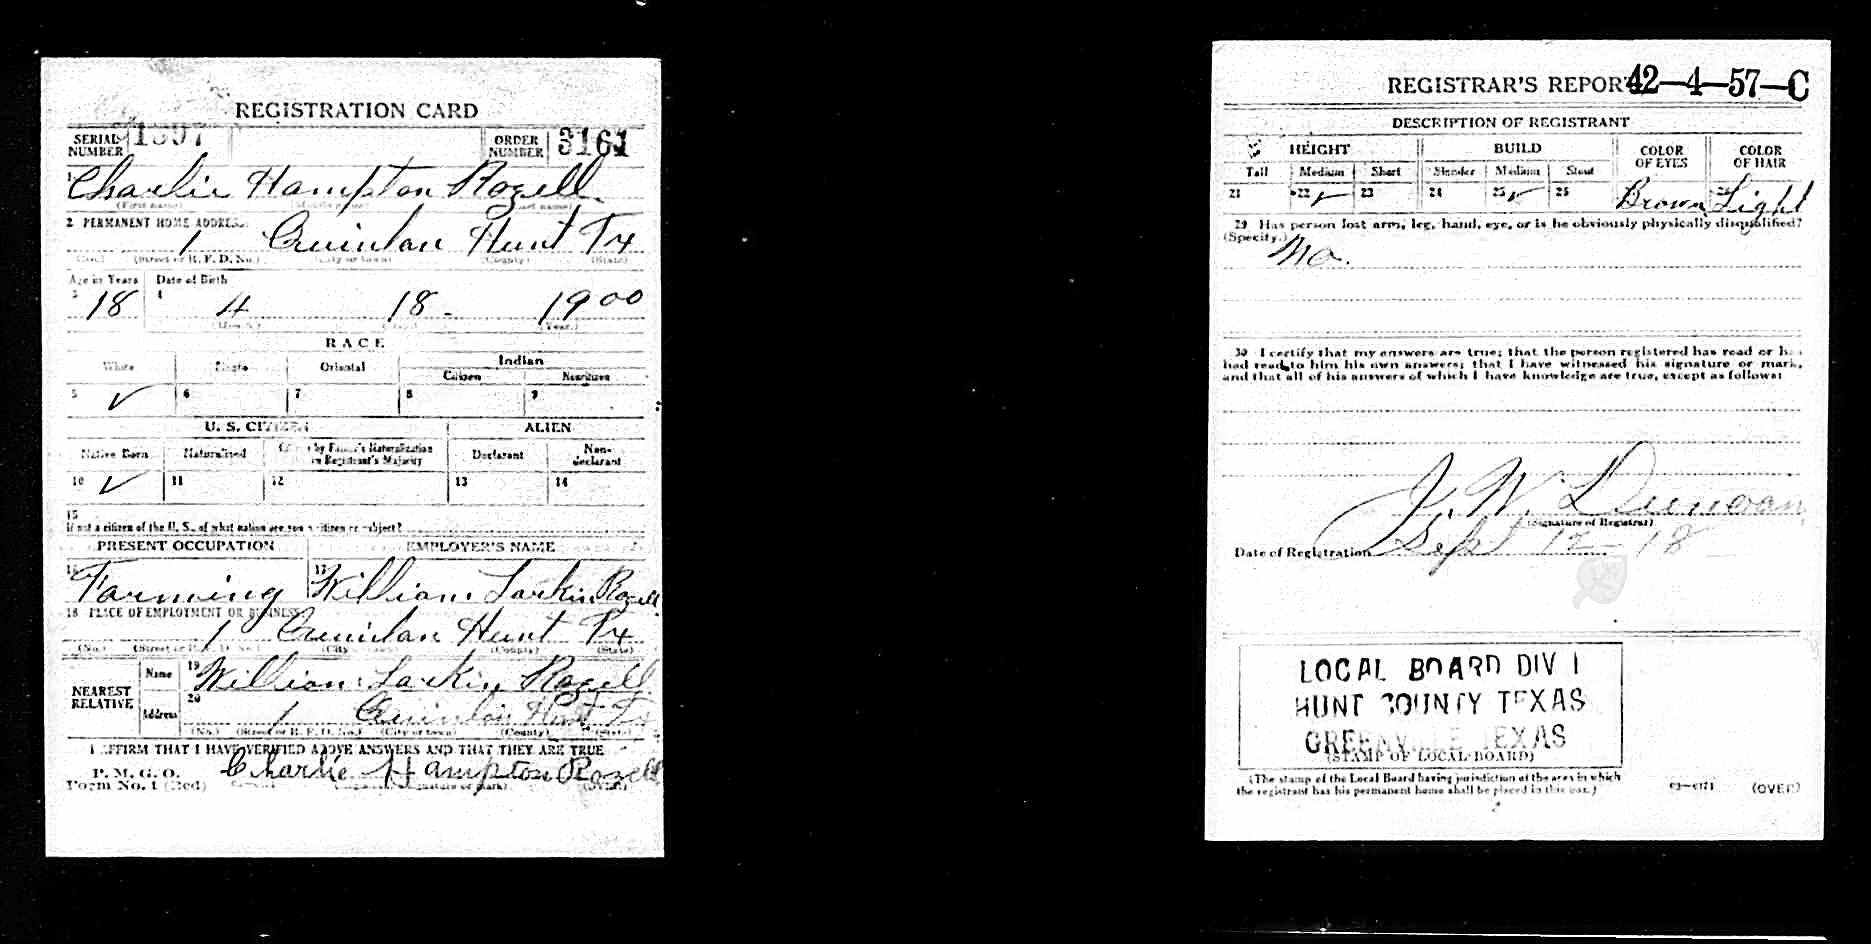 REGISTRATION CARD
SERIAL NUMBER 1397 ORDER NUMBER 3161
1 Charlie Hampton Rozell
(First name) (Middle name) (Last name)
2 PERMANENT HOME ADDRESS:
1 Quinlan Hunt Tx
(No.) (Street or R. F. D. No.) (City or town) (County) (State)
Age in Years Date of Birth
3 18 4 4 18 - 1900
(Month.) (Day.) (Year.)
RACE
White Negro Oriental Indian
Citizen Noncitizen
5 ✓ 6 7 8 9
U. S. CITIZEN ALIEN
Native Born Naturalized Citizen by Father's Naturalization Before Registrant's Majority Declarant Non-declarant
10 ✓ 11 12 13 14
15
If not a citizen of the U. S., of what nation are you a citizen or subject?
PRESENT OCCUPATION EMPLOYER'S NAME
16 Farming 17 William Larkin Rozell
18 PLACE OF EMPLOYMENT OR BUSINESS:
1 Quinlan Hunt Tx
(No.) (Street or R. F. D. No.) (City or town) (County) (State)
NEAREST RELATIVE Name 19 William Larkin Rozell
Address 20 1 Quinlan Hunt Tx
(No.) (Street or R. F. D. No.) (City or town) (County) (State)
I AFFIRM THAT I HAVE VERIFIED ABOVE ANSWERS AND THAT THEY ARE TRUE
P. M. G. O.
Form No. 1 (Red) Charlie Hampton Rozell
(Registrant's signature or mark) (OVER)
REGISTRAR'S REPORT 42-4-57-C
DESCRIPTION OF REGISTRANT
HEIGHT BUILD COLOR OF EYES COLOR OF HAIR
Tall Medium Short Slender Medium Stout
21 22 ✓ 23 24 25 ✓ 26 Brown Light
29 Has person lost arm, leg, hand, eye, or is he obviously physically disqualified?
(Specify.) No.
30 I certify that my answers are true; that the person registered has read or has
had read to him his own answers; that I have witnessed his signature or mark,
and that all of his answers of which I have knowledge are true, except as follows:
J. W. Duncan
(Signature of Registrar)
Date of Registration Sept 12 - 18
LOCAL BOARD DIV 1
HUNT COUNTY TEXAS
GREENVILLE TEXAS
(STAMP OF LOCAL BOARD)
(The stamp of the Local Board having jurisdiction of the area in which
the registrant has his permanent home shall be placed in this box.)
03-6171 (OVER)